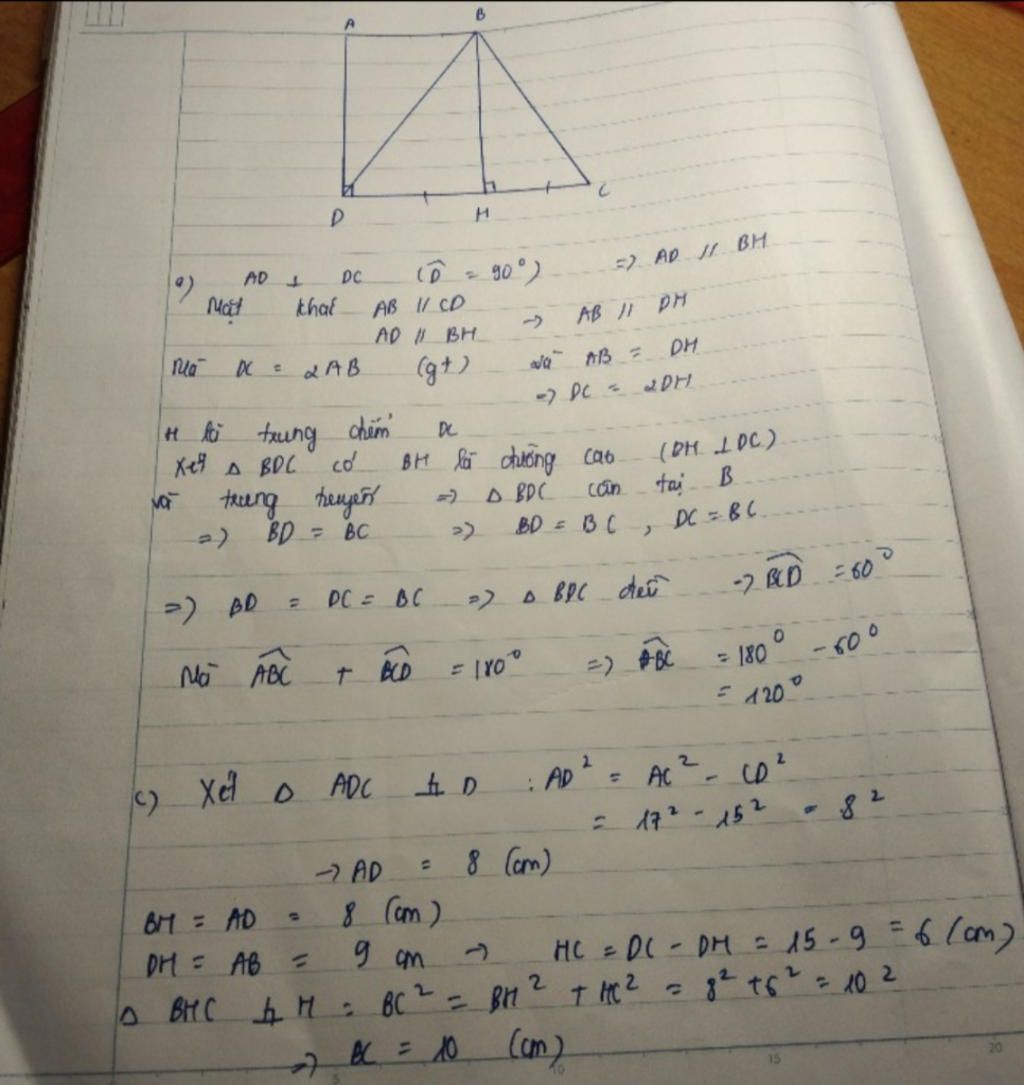 A
B
D
H
C
a) AD ⊥ DC (D̂ = 90°) => AD // BH
Mặt khác AB // CD
AD // BH -> AB // DH
Mà DC = 2AB (gt) và AB = DH
=> DC = 2DH
H là trung điểm DC
Xét Δ BDC có BH là đường cao (DH ⊥ DC)
và trung tuyến => Δ BDC cân tại B
=> BD = BC => BD = BC , DC = BC
=> BD = DC = BC => Δ BDC đều -> B̂CD = 60°
Mà ÂBC + B̂CD = 180° => ÂBC = 180° - 60°
= 120°
c) Xét Δ ADC ⊥ D : AD² = AC² - CD²
= 17² - 15² = 8²
-> AD = 8 (cm)
BH = AD = 8 (cm)
DH = AB = 9 cm -> HC = DC - DH = 15 - 9 = 6 (cm)
Δ BHC ⊥ H = BC² = BH² + HC² = 8² + 6² = 10²
=> BC = 10 (cm)
5 10 15 20